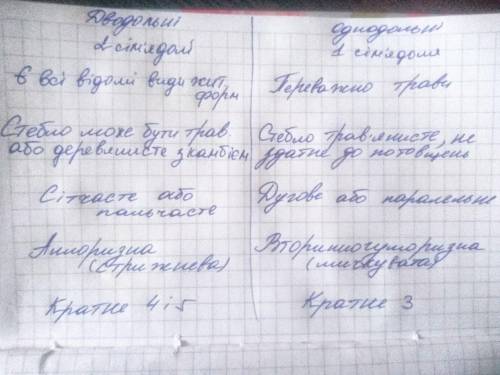 Дводольні
2 сім'ядолі
Є всі відомі види жит.
форм
Стебло може бути трав.
або деревянисте з камбієм
Сітчасте або
пальчасте
Алоризна
(стрижнева)
Кратне 4 і 5
Однодольні
1 сім'ядоля
Переважно трави
Стебло трав'янисте, не
здатне до потовщень
Дугове або паралельне
Вториннагоморизна
(мичкувата)
Кратне 3